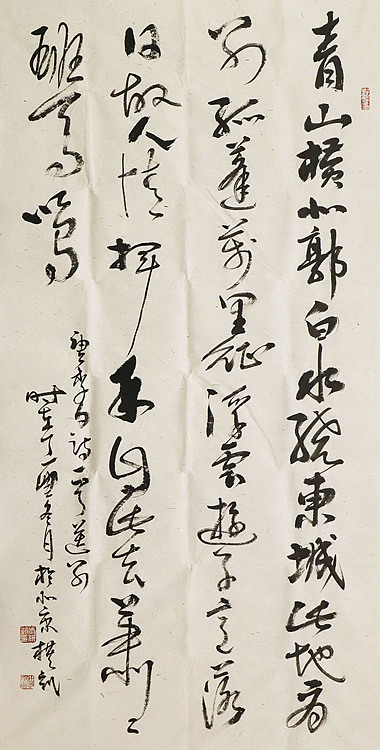 青山橫北郭白水繞東城此地為
別孤蓬萬里征浮雲遊子意落
日故人情揮手自此去蕭々
班馬鳴
李白詩一首送別
時在丁丑冬月於北京